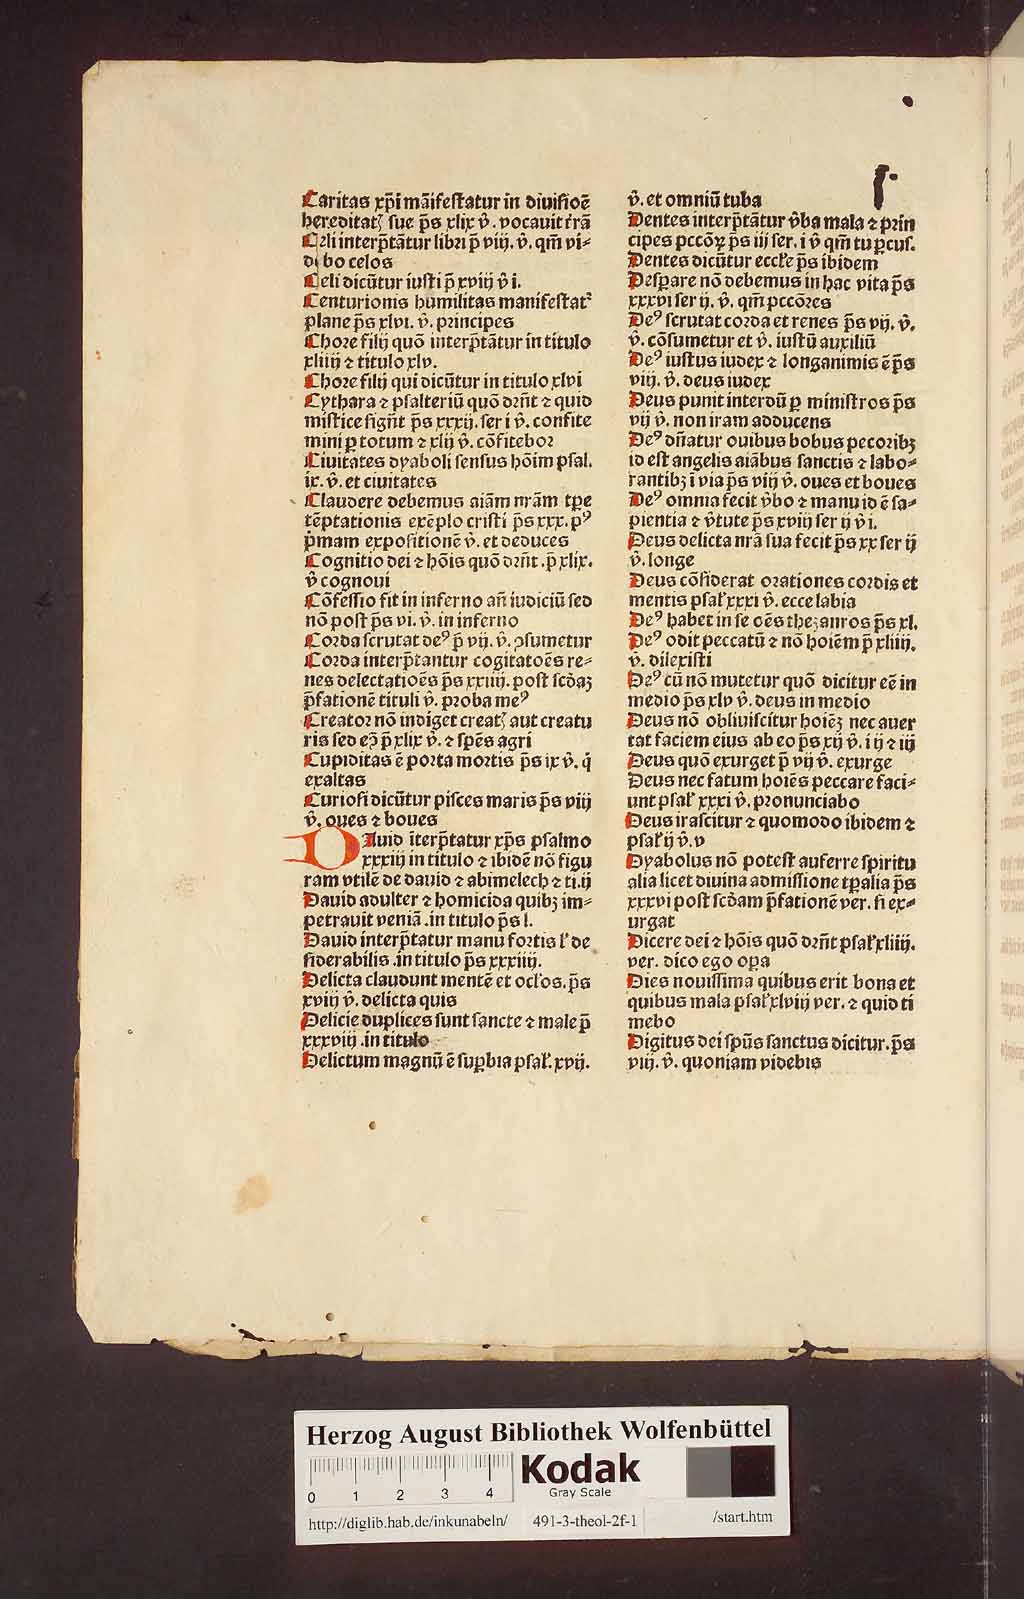 Caritas xp̄i māifestatur in diuisioē
hereditatꝭ sue p̄s xlix v̄. vocauit t̄rā
Celi interp̄tātur libri p̄ viij. v̄. qm̄ vi-
debo celos
Celi dicūtur iusti p̄ xviij v̄ i.
Centurionis humilitas manifestat᷑
plane p̄s xlvi. v̄. principes
Chore filij quō interp̄tātur in titulo
xliiij ⁊ titulo xlv.
Chore filij qui dicūtur in titulo xlvi
Cythara ⁊ psalteriū quō drn̄t ⁊ quid
mistice sign̄t p̄s xxxij. ser i v̄. confite
mini ꝑ totum ⁊ xlij v̄. cōfitebor
Ciuitates dyaboli sensus hōim psal.
ix. v̄. et ciuitates
Claudere debemus aīam nr̄am tꝑe
tēptationis exēplo cristi p̄s xxx. pꝰ
p̄mam expositionē v̄. et deduces
Cognitio dei ⁊ hōis quō drn̄t .p̄ xlix.
v̄ cognoui
Cōfessio fit in inferno an̄ iudiciū sed
nō post p̄s vi. v̄. in inferno
Corda scrutat deꝰ p̄ vij. v̄. ꝯsumetur
Corda interp̄tantur cogitatoēs re-
nes delectatioēs p̄s xxiiij. post scd̄aꝫ
p̄fationē tituli v̄. proba meꝰ
Creator nō indiget creatꝭ aut creatu
ris sed eꝯ p̄ xlix v̄. ⁊ sp̄es agri
Cupiditas ē porta mortis p̄s ix v̄. q̄
exaltas
Curiosi dicūtur pisces maris p̄s viij
v̄. oues ⁊ boues
DAuid īterp̄tatur xp̄s psalmo
xxxiij in titulo ⁊ ibidē nō figu
ram vtilē de dauid ⁊ abimelech ⁊ ti.ij
Dauid adulter ⁊ homicida quibꝫ im-
petrauit veniā .in titulo p̄s l.
Dauid interp̄tatur manu fortis lꝭ de
siderabilis .in titulo p̄s xxxiiij.
Delicta claudunt mentē et ocl'os. p̄s
xviij v̄. delicta quis
Delicie duplices sunt sancte ⁊ male p̄
xxxviij .in titulo
Delictum magnū ē suꝑbia psal'. xvij.
v̄. et omniū tuba
Dentes interp̄tātur v̄ba mala ⁊ prin
cipes pccōꝝ p̄s iij ser. i v̄ qm̄ tu ꝑcus.
Dentes dicūtur eccl'e p̄s ibidem
Desꝑare nō debemus in hac vita p̄s
xxxvi ser ij. v̄. qm̄ pccōres
Deꝰ scrutat corda et renes p̄s vij. v̄.
v̄. cōsumetur et v̄. iustū auxiliū
Deꝰ iustus iudex ⁊ longanimis ē p̄s
viij. v̄. deus iudex
Deus punit interdū ꝑ ministros p̄s
vij v̄. non iram adducens
Deꝰ dn̄atur ouibus bobus pecoribꝫ
id est angelis aīabus sanctis ⁊ labo-
rantibꝫ ī via p̄s viij v̄. oues et boues
Deꝰ omnia fecit v̄bo ⁊ manu id ē sa-
pientia ⁊ v̄tute p̄s xviij ser ij v̄ i.
Deus delicta nrā sua fecit p̄s xx ser ij
v̄. longe
Deus cōsiderat orationes cordis et
mentis psal' xxxi v̄. ecce labia
Deꝰ habet in se oēs theꝫauros p̄s xl.
Deꝰ odit peccatū ⁊ nō hoīem p̄ xliiij.
v̄. dilexisti
Deꝰ cū nō mutetur quō dicitur eē in
medio p̄s xlv v̄. deus in medio
Deus nō obliuiscitur hoīeꝫ nec auer
tat faciem eius ab eo p̄s xij v̄. i ij ⁊ iij
Deus quō exurget p̄ vij v̄. exurge
Deus nec fatum hoīēs peccare faci-
unt psal' xxxi v̄. pronunciabo
Deus irascitur ⁊ quomodo ibidem ⁊
psal' ij v̄. v
Dyabolus nō potest auferre spiritu
alia licet diuina admissione tꝑalia p̄s
xxxvi post scd̄am p̄fationē ver. si ex-
urgat
Dicere dei ⁊ hōis quō drn̄t psal' xliiij.
ver. dico ego oꝑa
Dies nouissima quibus erit bona et
quibus mala psal' xlviij ver. ⁊ quid ti
mebo
Digitus dei sp̄us sanctus dicitur. p̄s
viij. v̄. quoniam videbis
Herzog August Bibliothek Wolfenbüttel
0 1 2 3 4
Kodak
Gray Scale
http://diglib.hab.de/inkunabeln/ 491-3-theol-2f-1 /start.htm